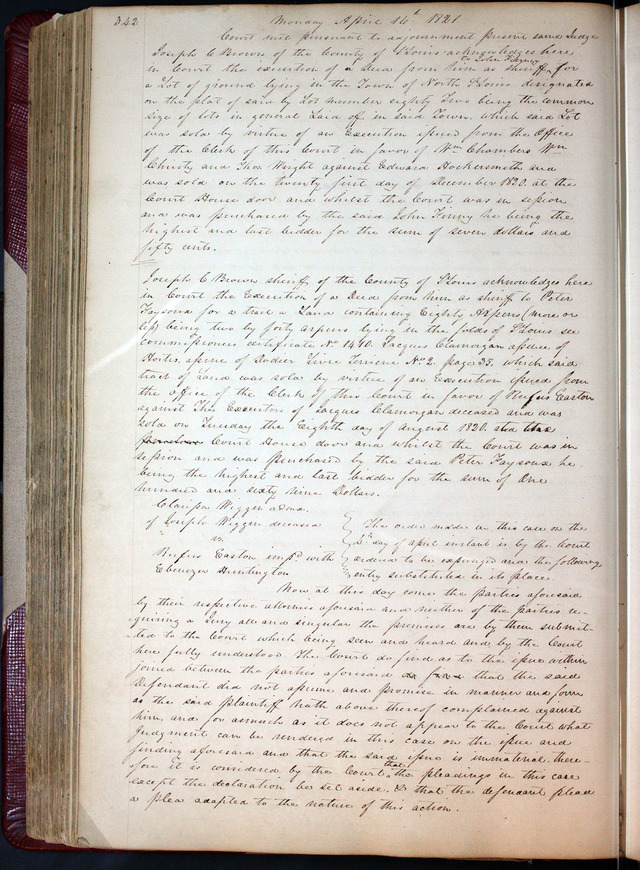 342
Monday April 16th 1821
Court met pursuant to adjournment present same Judge
Joseph C Brown of the County of St Louis acknowledges here
in Court the execution of a Deed from him as sheriff to John Finney for
a Lot of ground lying in the Town of North St Louis designated
on the plat of said by Lot number eighty Two being the common
size of lots in general Laid off in said Town, which said Lot
was sold by virtue of an Execution issued from the Office
of the Clerk of this Court in favor of Wm Chambers Wm
Christy and Thos Wright against Edward Hockersmith and
was sold on the twenty first day of December 1820. at the
Court House door and whilst the Court was in session
and was purchased by the said John Finny he being the
highest and last bidder for the sum of seven dollars and
fifty cents.
Joseph C Brown sheriff of the County of St Louis acknowledges here
in Court the Execution of a Deed from him as sheriff to Peter
Faysoux for a tract of Land containing Eighty Arpens (more or
less) being two by forty arpens lying in the fields of St Louis see
commissioners certificate No 1440. Jacques Clamorgan assinee of
Hortiz, assinee of Dodier Livre Terriene No 2. page 33. which said
tract of Land was sold by virtue of an Execution issued from
the office of the Clerk of this Court in favor of Rufus Easton
against The Executors of Jacques Clamorgan deceased and was
sold on Tuesday the Eighth day of August 1820. at the
Court House door and whilst the Court was in
session and was purchased by the said Peter Faysoux he
being the highest and last bidder for the sum of One
hundred and sixty nine Dollars.
Clarissa Wiggin adma.
of Joseph Wiggin deceased
vs.
Rufus Easton impd. with
Ebenezer Huntington
The order made in this case on the
2d day of april instant is by the Court
ordered to be expunged and the following
entry substituted in its place.
Now at this day come the parties aforesaid
by their respective attornies aforesaid and neither of the parties re-
quiring a Jury all and singular the premises are by them submit-
ted to the Court which being seen and heard and by the Court
here fully understood The Court do find as to the issue within
joined between the parties aforesaid that the said
Defendant did not assume and promise in manner and form
as the said plaintiff hath above thereof complained against
him, and for asmuch as it does not appear to the Court what
Judgment can be rendered in this case on the issue and
finding aforesaid and that the said issue is immaterial, there-
fore it is considered by the Court that the pleadings in this case
except the declaration be set aside, & that the defendant plead
a plea adapted to the nature of this action.